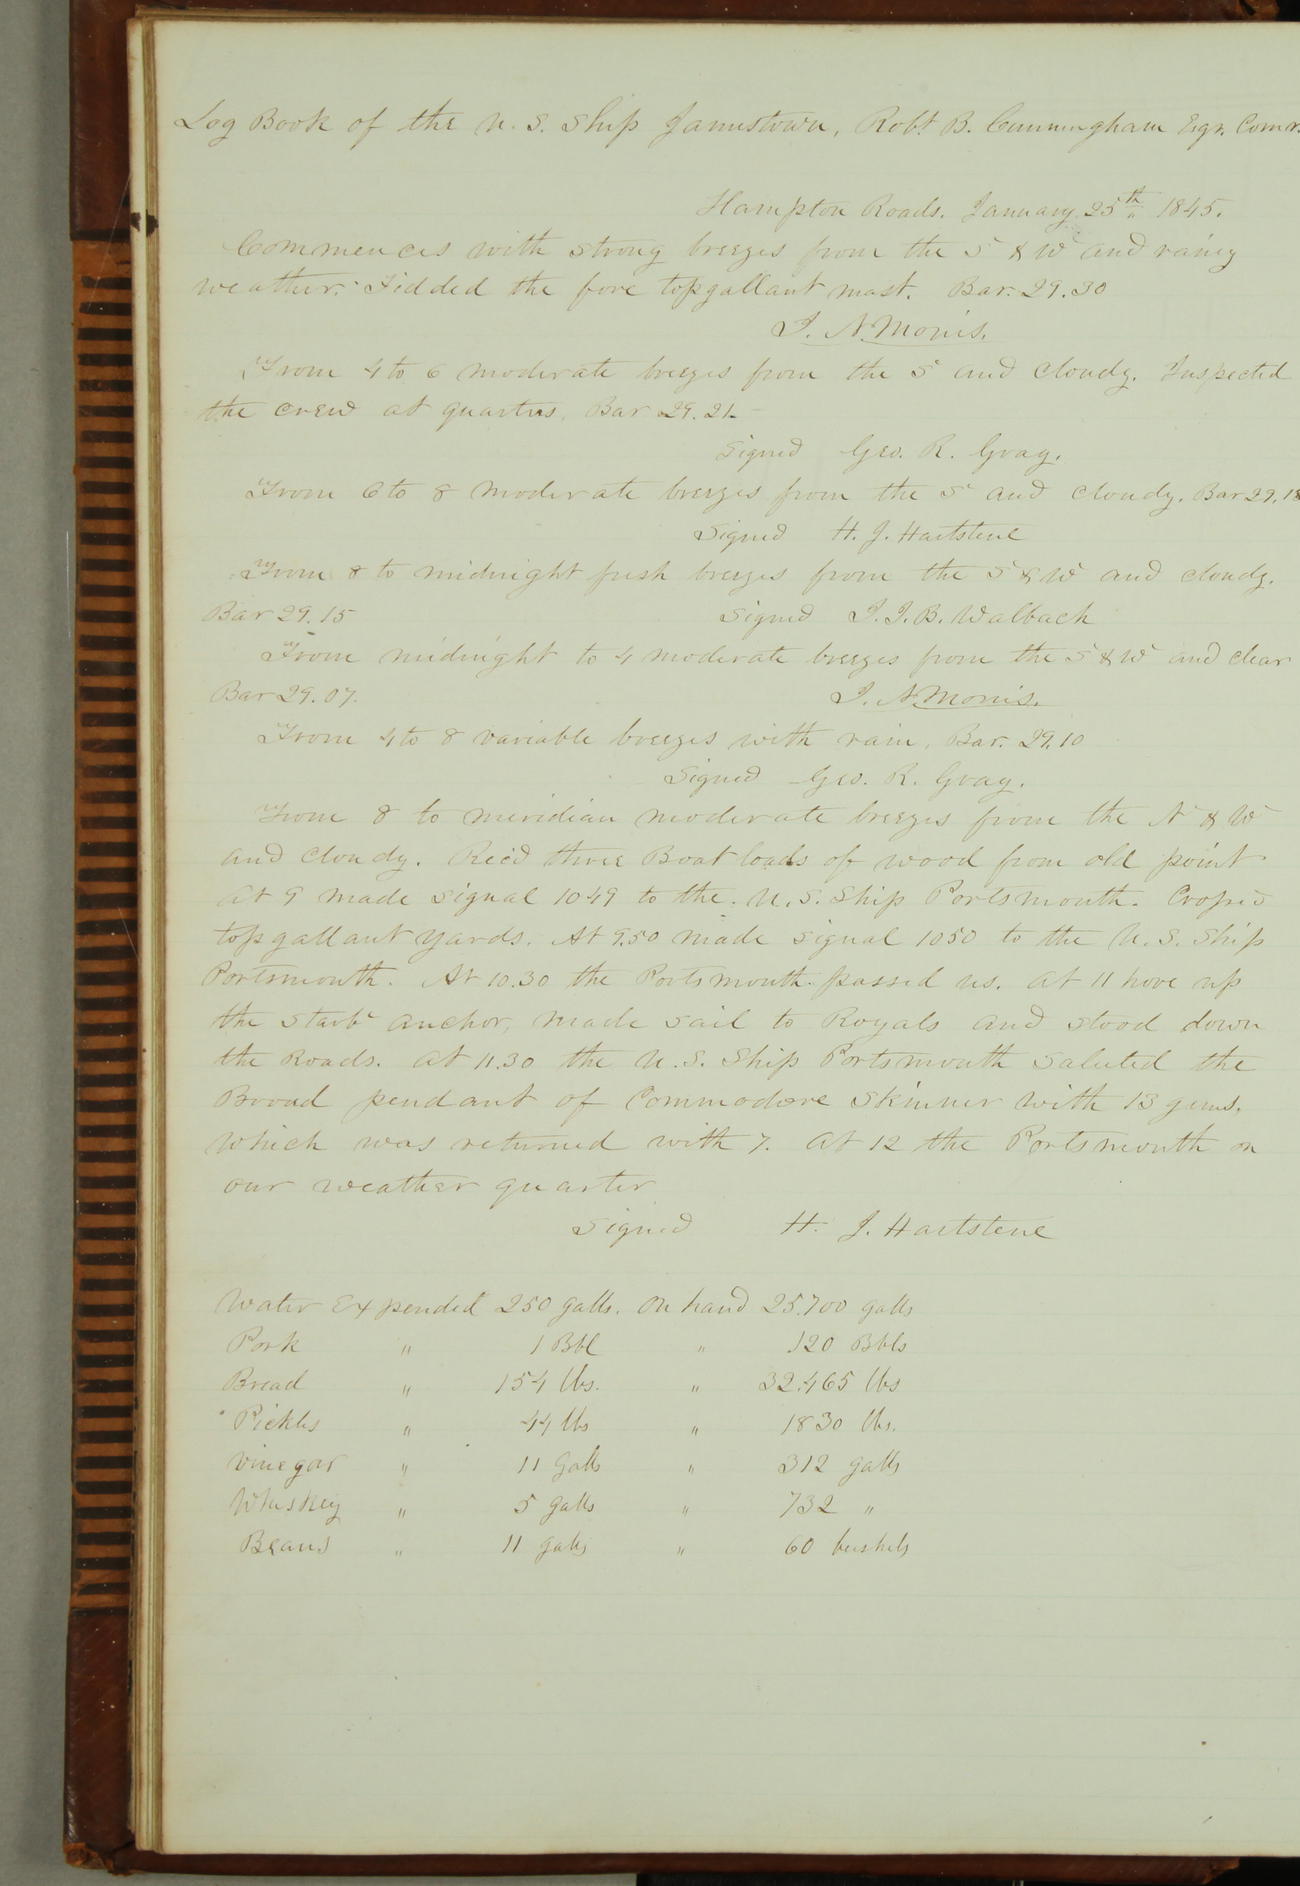 Log Book of the U.S. Ship Jamestown, Robt. B. Cunningham Esqr. Comr.
Hampton Roads. January 25th 1845.
Commences with strong breezes from the S & W and rainy
weather. Fidded the fore topgallant mast. Bar. 29.30
I. N. Morris.
From 4 to 6 moderate breezes from the S and cloudy. Inspected
the crew at quarters. Bar 29.21
Signed Geo. R. Gray.
From 6 to 8 moderate breezes from the S and cloudy. Bar 29.18
Signed H. J. Hartstene
From 8 to midnight fresh breezes from the S & W and cloudy.
Bar 29.15 Signed J. J. B. Walbach
From midnight to 4 moderate breezes from the S & W and clear
Bar 29.07. I. N. Morris.
From 4 to 8 variable breezes with rain, Bar. 29.10
Signed Geo. R. Gray.
From 8 to meridian moderate breezes from the N & W
and cloudy. Rec'd three Boat loads of wood from old point
At 9 made signal 1049 to the U.S. Ship Portsmouth. Cross'd
topgallant yards. At 9.50 made signal 1050 to the U.S. Ship
Portsmouth. At 10.30 the Portsmouth passed us. At 11 hove up
the starbd anchor, made sail to Royals and stood down
the Roads. At 11.30 the U.S. Ship Portsmouth saluted the
Broad pendant of Commodore Skinner with 13 guns,
which was returned with 7. At 12 the Portsmouth on
our weather quarter
Signed H. J. Hartstene
Water Expended 250 galls. On hand 25.700 galls
Pork " 1 Bbl " 120 Bbls
Bread " 154 lbs. " 32.465 lbs
Pickles " 44 lbs " 1830 lbs.
Vinegar " 11 galls " 312 galls
Whiskey " 5 galls " 732 "
Beans " 11 galls " 60 bushels